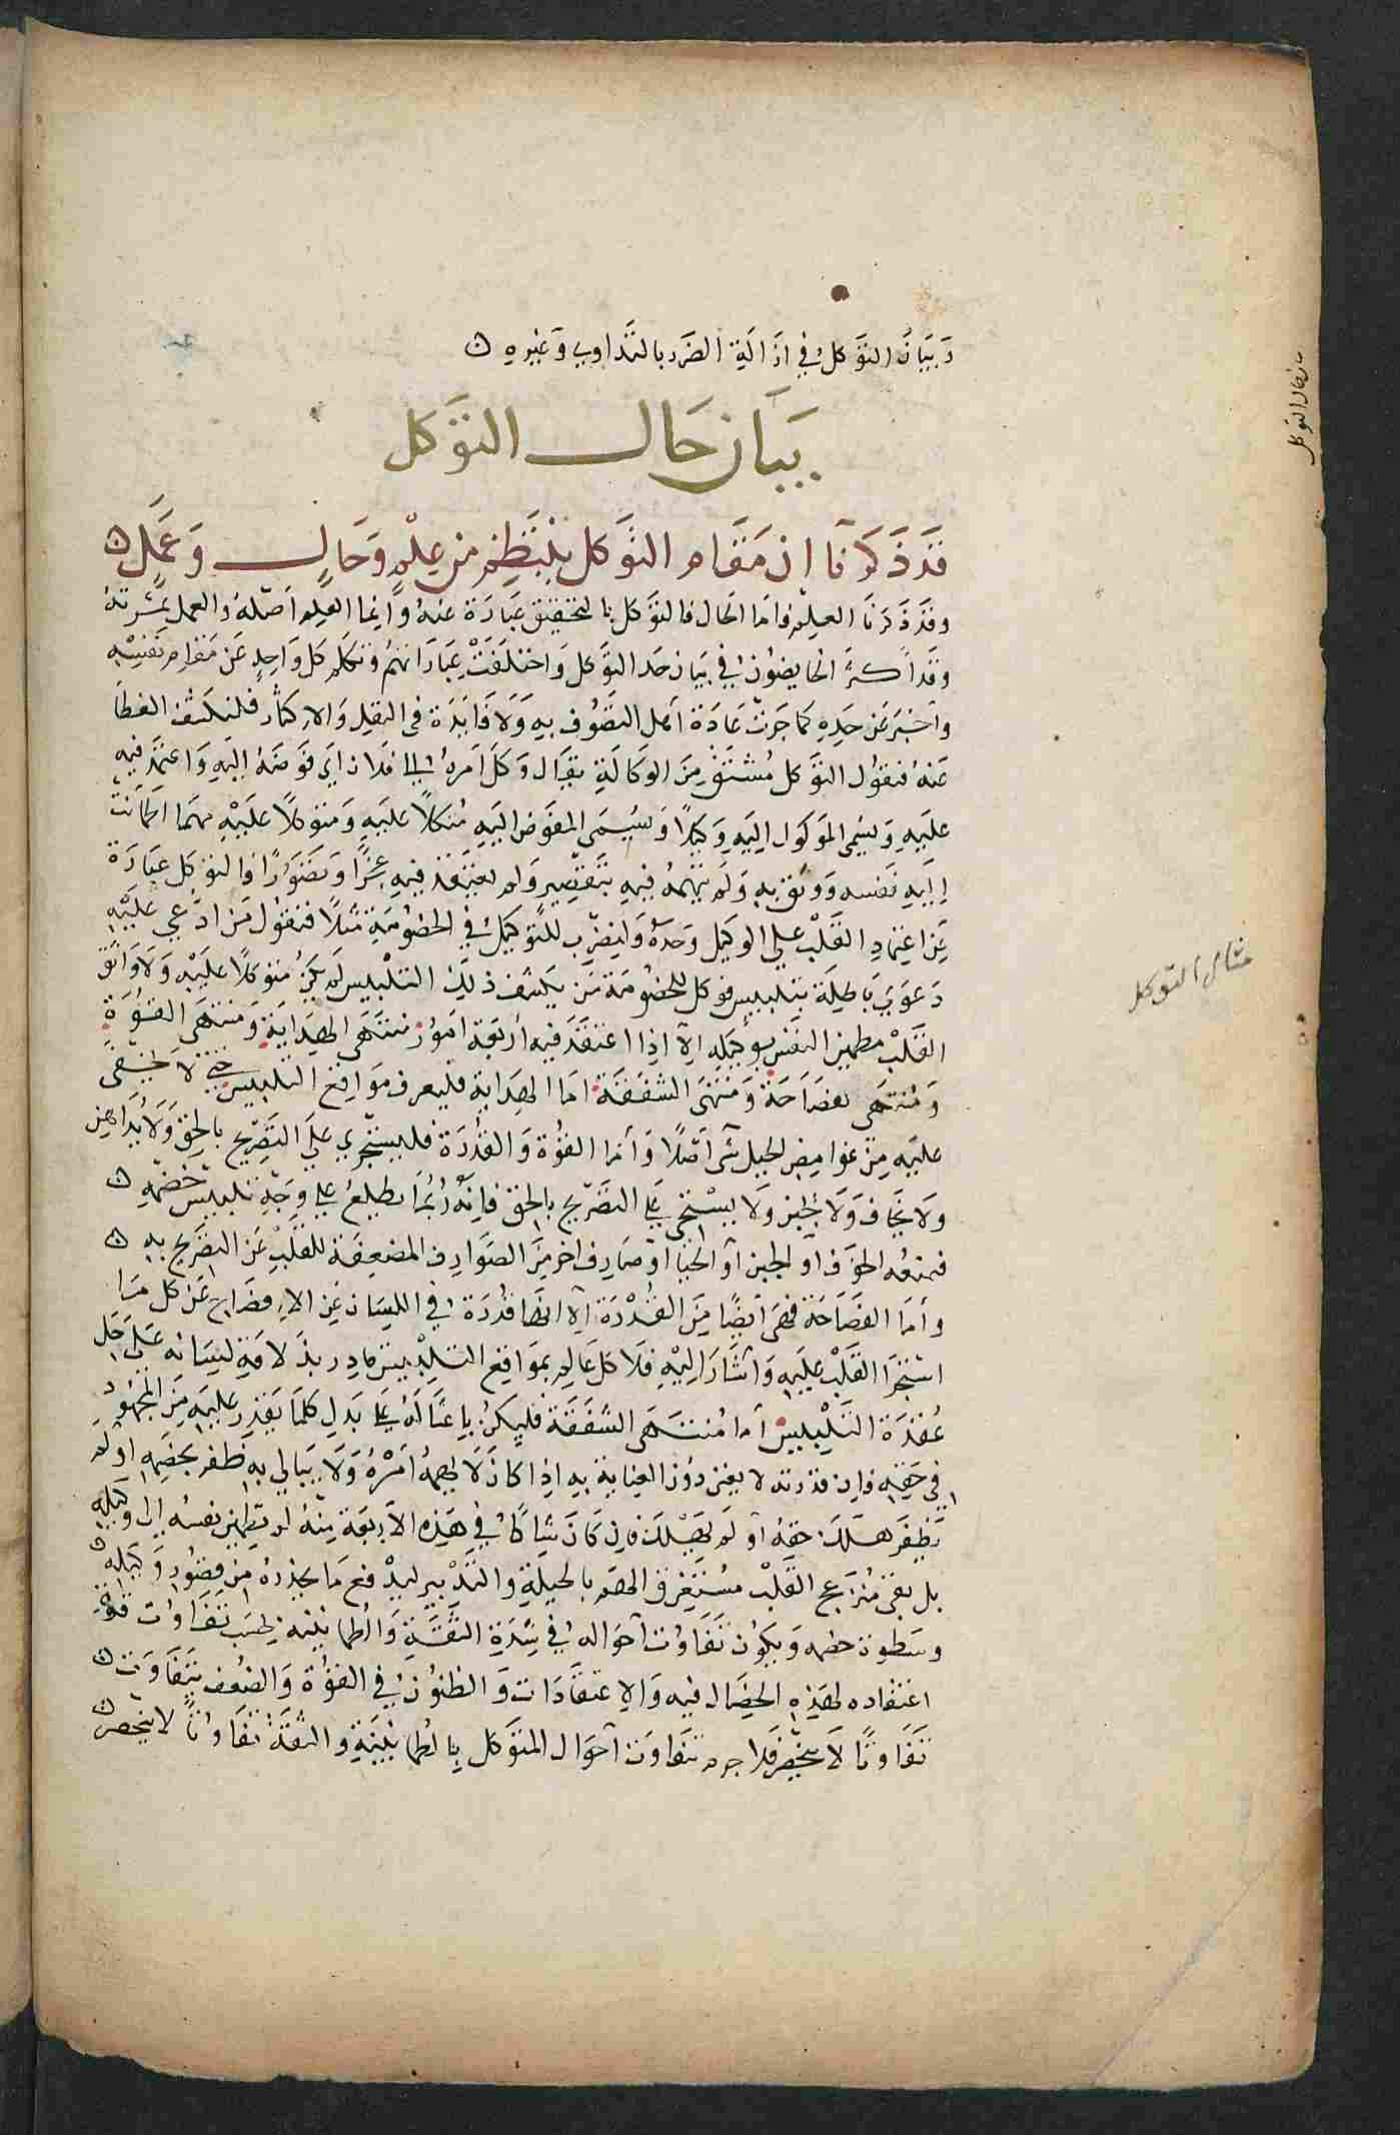 وَبَيَانُ التوَكل في ازَالَة الضَرر بالتَداوي وَغيره
بيَان حَال التوَكل
قَد ذَكرنَا ان مَقَام التوَكل ينتَظِم من عِلْمٍ وَحَالٍ وَعَمَلٍ
وقَد ذَكرنَا العِلم فامَا الحَال فالتوَكل بالتحقيق عبَارَة عنهُ وَانما العِلم اَصلهُ والعمل ثمَرتهُ
وقَد اكثرَ الخايضُون في بيَان حَد التوَكل وَاختلفَتْ عِبَارَاتهُم وتكلم كل وَاحِدٍ عَن مَقام نَفسِه
وَاَخبَر عَن حَدِهِ كما جَرَتْ عَادَة اهل التصَوُف بِهِ وَلا فَايدَة في النقل وَالاكثار فلنكشف الغطَا
عَنهُ فنقوُل التوَكل مُشتَق مِنَ الوكَالَةِ يقَال وَكلَ اَمرهُ الي فلان اي فَوَضَهُ اليَهِ وَاعتمَد فيهِ
علَيهِ وَيسَمى الموكول اليَهِ وَكيلاً وَيُسَمى المفَوض اليَهِ مُتكلاً علَيهِ وَمتوكلاً علَيْهِ مهمَا اطمانَت
اليهِ نَفسه وَوثق بهِ وَلم يتهمهُ فيهِ بتقصِير وَلم يعتقد فيهِ عجزًا وَقصُورًا فالتوَكل عبَارَة
عَن اعتمادِ القَلْب علي الوكيل وَحدهُ وَلنضرِب للتوَكيل في الخصُومَةِ مثلاً فنقوُل مَن ادعي علَيْهِ
دَعوَي بَاطلة بتلبيس فوكل للخصُومَة مَن يكشف ذلِك التلبيس لم يكن متوَكلاً علَيهِ وَلا وَاثق
القَلْب مطمئن النفس بوكيلهِ الا اذا اعتقَد فيه اَربعَة امُور منتهَى الهدَاية وَمنتهَى القوُة
وَمُنتهَى الفصَاحَة وَمنتهَى الشفَقَة امَا الهدَاية فليعرف موَاقع التلبيس حَتي لا يخفى
علَيهِ مِن غَوامِض الحيل شَي اَصلاً وَاَما القوُة وَالقُدرَة فليستجري علي التصَريح بالحق وَلا يدَاهن
وَلا يخَاف وَلا يجبن وَلا يستحي علي التصَريح بالحق فانهُ ربُمَا يطلع علي وَجهِ تلبيس خَصمهِ
فيمنعه الخَوف اَو الجبن اَو الحيَا اَو صَارِف اخر مِنَ الصَوارِف المضعِفَة للقَلْبِ عَن التصَريح بهِ
وَأمَا الفصَاحَة فهيَ اَيضًا مِنَ القُدْرَة الا انهَا قدُرَة في اللسَان عَن الافصَاح عَن كل مَا
استجرَا القَلْب علَيهِ وَاَشَارَ اليْهِ فلا كل عَالِم بموَاقع التلبيس قادر بذلاقةِ لسَانه علي حَل
عُقدَة التلبيس اَما مُنتهَى الشفَقَة فليكن باعثًا لَهُ علي بَذل كلمَا يَقدِر علَيهِ مِنَ المجهُود
في حَقهِ فان قدرته لا تغني دُون العناية بهِ اذا كان لا يهمهُ اَمْرُهُ وَلا يبَالي بهِ ظفر بخصَمهِ اوُلم
يَظفر هلك حقهُ اَو لم يَهْلك فان كان شاكًا في هَذِه الاَربعَة منهُ لم تطمئن نفسهُ الي وَكيلهِ
بل بقي مُنزعج القَلْب مستغرق الهم بالحيلة والتَدْبير ليدْفع مَا يحذرهُ مِن قصُورِ وَكيله
وسَطوت خصمه وَيكوُن تفاوُت اَحواله في شدَةِ الثقَة وَالطمانينة بحسَب تفَاوُت قوةِ
اعتقاده لهَذِهِ الخصَال فيه وَالاعتقَادَات وَالظنوُن في القوُة وَالضُعف يتفَاوَت
تفَاوتًا لا ينحَصِر فلا جرم تتفاوَت اَحوَال المتوَكل بالطمانينَةِ والثقَة تفَاوتًا لا ينحصر
مثال التوكل
بيان حال التوكل